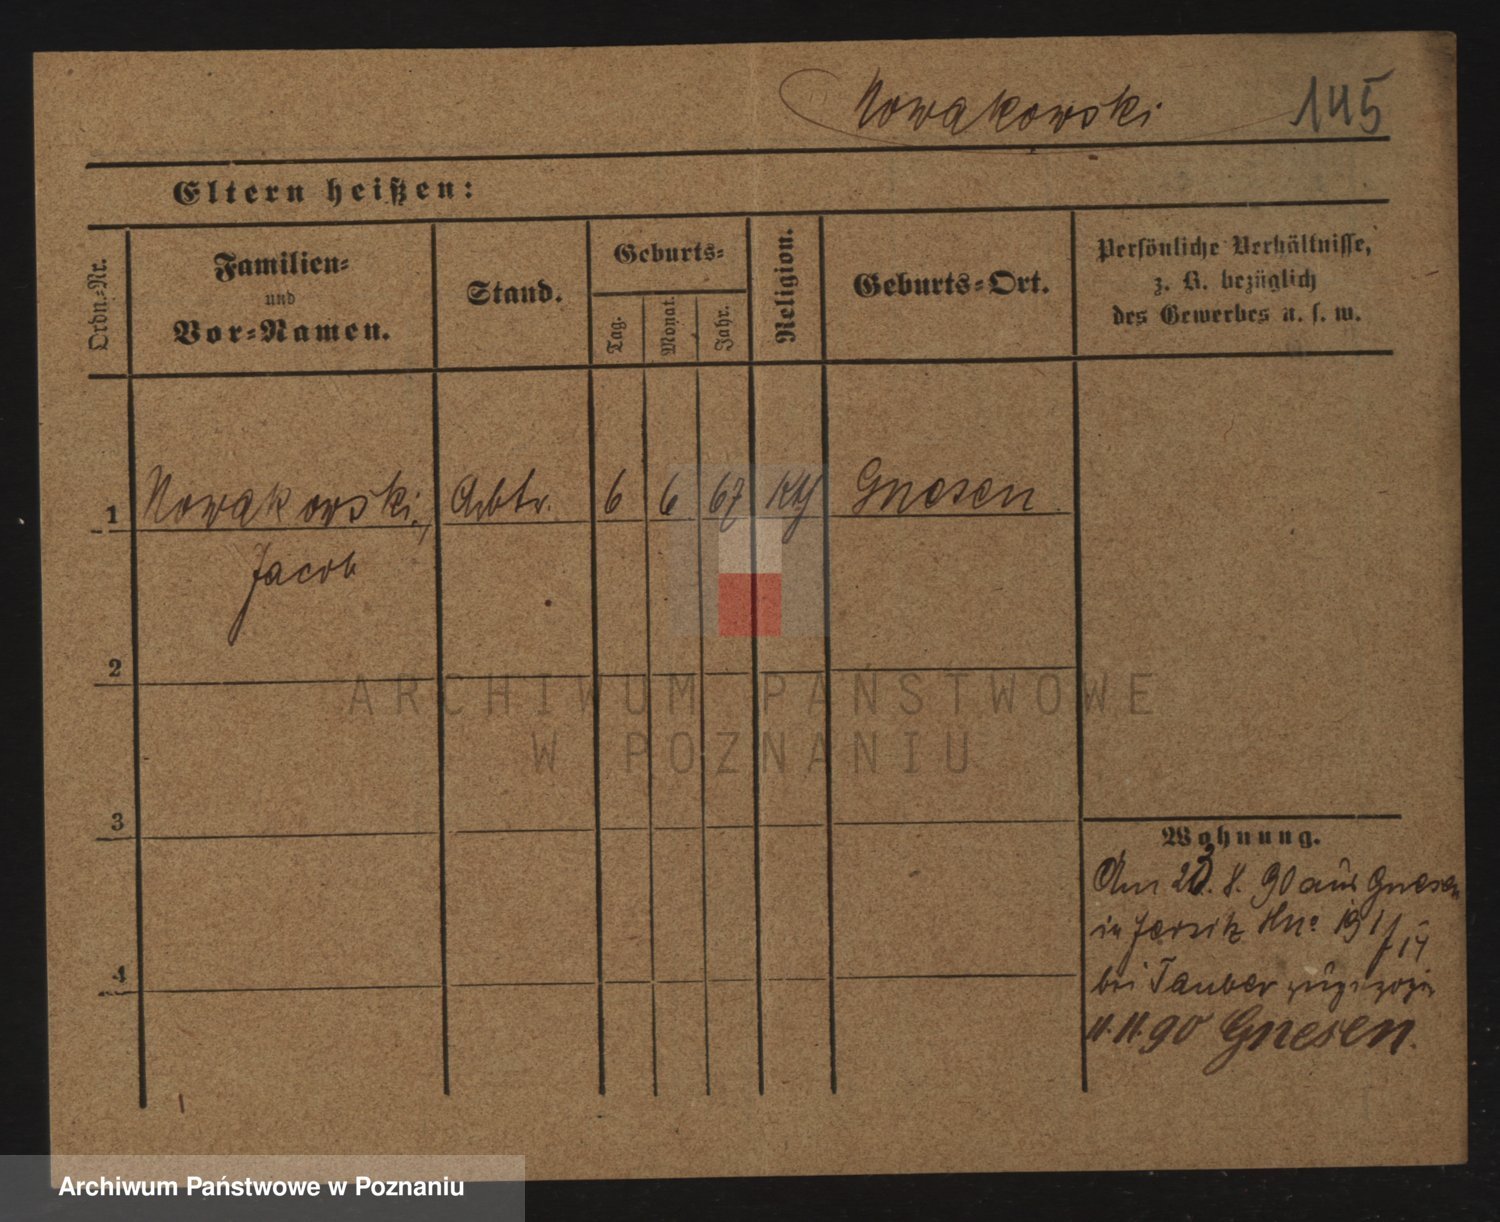 Nowakowski 145
Eltern heißen:
Ordn.-Nr.
Familien-
und
Vor-Namen.
Stand.
Geburts-
Tag.
Monat.
Jahr.
Religion.
Geburts-Ort.
Persönliche Verhältnisse,
z. B. bezüglich
des Gewerbes u. s. w.
1 Nowakowski, Arbtr. 6 6 67 kth Gnesen
Jacob
2
3
4
Wohnung.
Am 23. 8. 90 aus Gnesen
in Jersitz Hnr 191/14
bei Tauber zugezogen
11.11.90 Gnesen.
ARCHIWUM PAŃSTWOWE
W POZNANIU
Archiwum Państwowe w Poznaniu